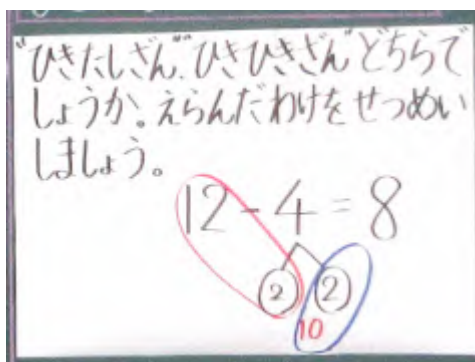 "ひきたしざん"､"ひきひきざん"どちらで
しょうか。えらんだわけをせつめい
しましょう。
12-4=8
2 2
10